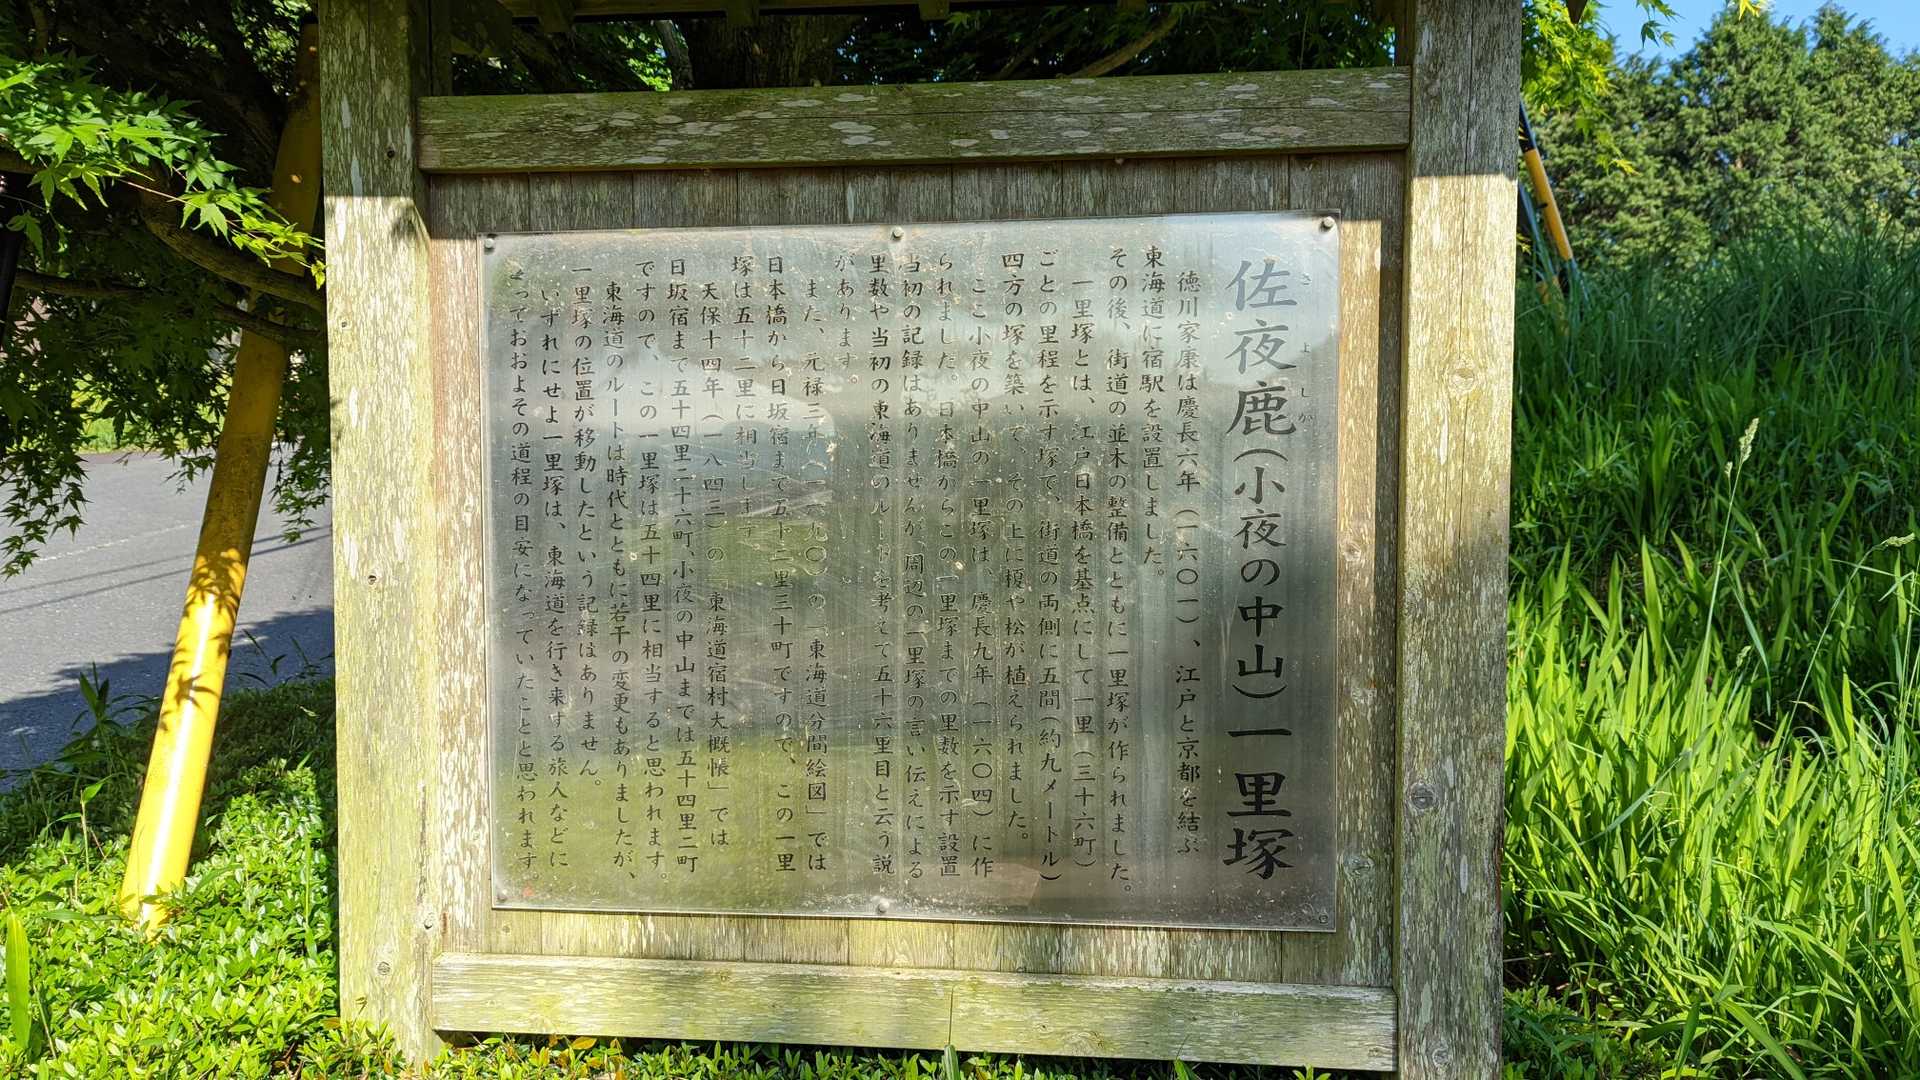 佐夜鹿(小夜の中山)一里塚
さよしか
徳川家康は慶長六年(一六〇一)、江戸と京都を結ぶ
東海道に宿駅を設置しました。
その後、街道の並木の整備とともに一里塚が作られました。
一里塚とは、江戸日本橋を基点にして一里(三十六町)
ごとの里程を示す塚で、街道の両側に五間(約九メートル)
四方の塚を築いて、その上に榎や松が植えられました。
ここ小夜の中山の一里塚は、慶長九年(一六〇四)に作
られました。日本橋からこの一里塚までの里数を示す設置
当初の記録はありませんが、周辺の一里塚の言い伝えによる
里数や当初の東海道のルートを考えて五十六里目と云う説
があります。
また、元禄三年(一六九〇)の「東海道分間絵図」では
日本橋から日坂宿まで五十二里三十町ですので、この一里
塚は五十二里に相当します。
天保十四年(一八四三)の「東海道宿村大概帳」では
日坂宿まで五十四里二十六町、小夜の中山までは五十四里二町
ですので、この一里塚は五十四里に相当すると思われます。
東海道のルートは時代とともに若干の変更もありましたが、
一里塚の位置が移動したという記録はありません。
いずれにせよ一里塚は、東海道を行き来する旅人などに
とっておおよその道程の目安になっていたことと思われます。